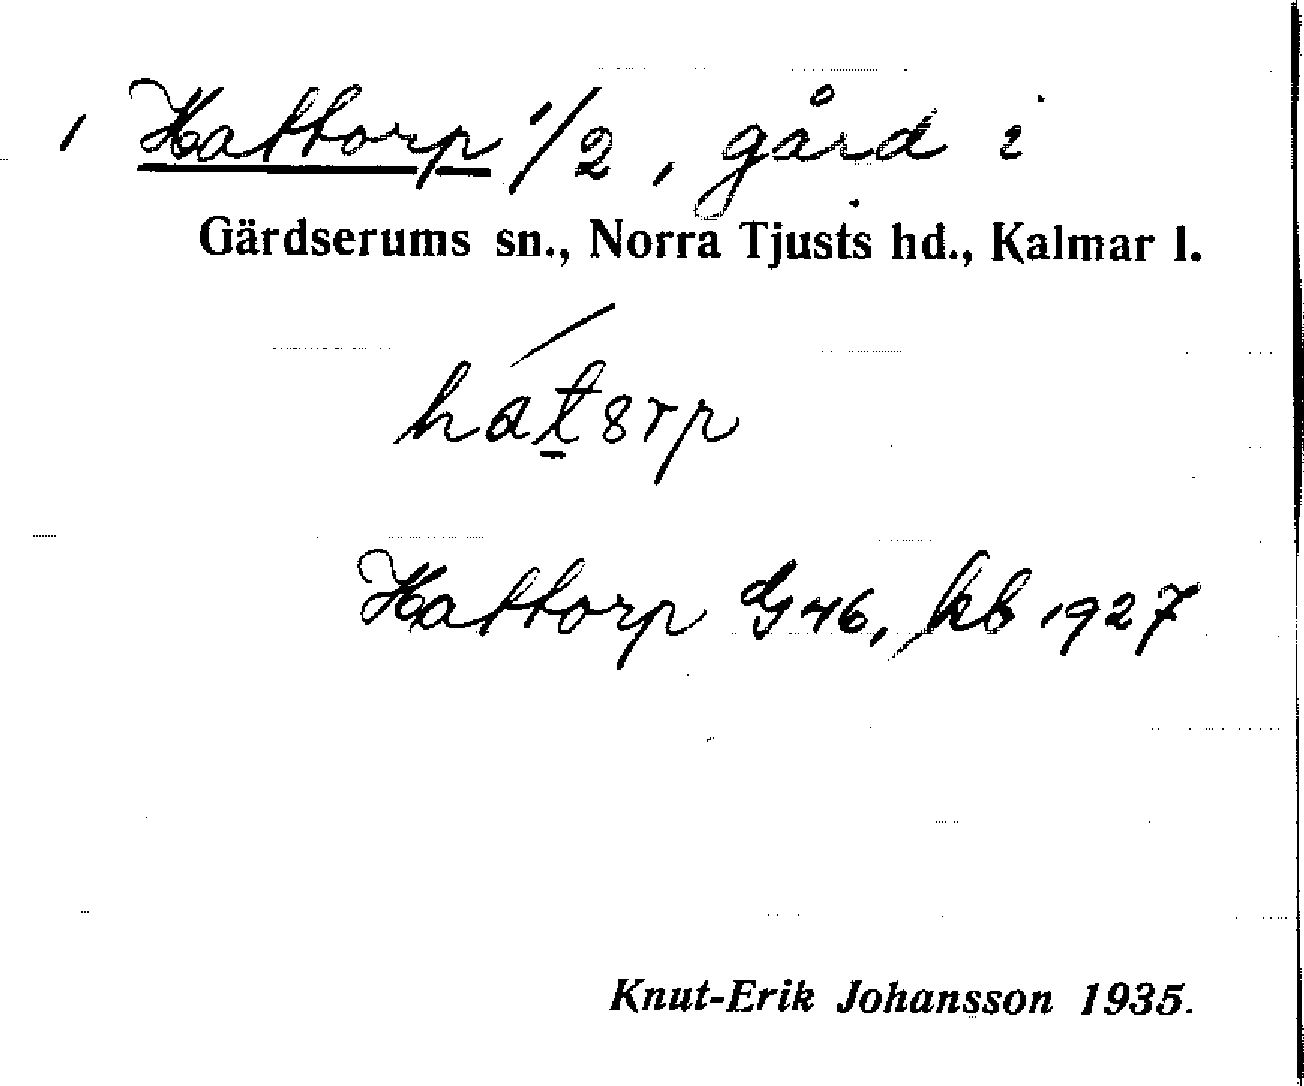 / Hattorp 1/2, gård i
Gärdserums sn., Norra Tjusts hd., Kalmar l.
hát8rp
Hattorp G46, kb 1927
Knut-Erik Johansson 1935.